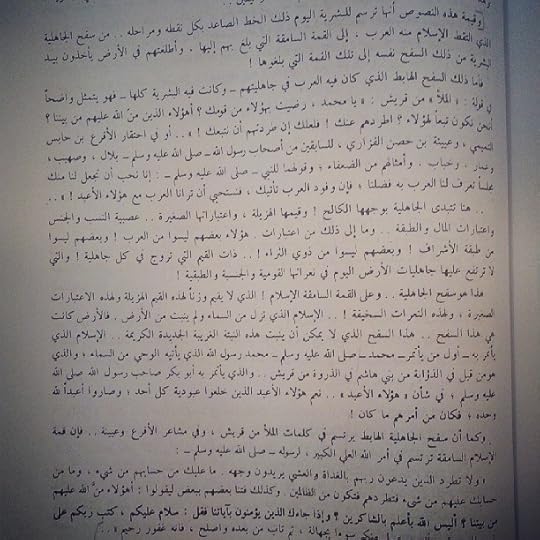 وقيمة هذه النصوص أنها ترسم للبشرية اليوم ذلك الخط الصاعد بكل نقطه ومراحله .. من سفح الجاهلية
الذي التقط الإسلام منه العرب ، إلى القمة السامقة التي بلغ بهم إليها . وأطلعتهم في الأرض يأخذون بيد
البشرية من ذلك السفح نفسه إلى تلك القمة التي بلغوها !
فأما ذلك السفح الهابط الذي كان فيه العرب في جاهليتهم – وكانت فيه البشرية كلها – فهو يتمثل واضحاً
في قولة : « الملأ » من قريش : « يا محمد ، رضيت بهؤلاء من قومك ؟ أهؤلاء الذين منّ الله عليهم من بيننا ؟
أنحن نكون تبعاً لهؤلاء ؟ اطردهم عنك ! فلعلك إن طردتهم أن نتبعك ! » .. أو في احتقار الأقرع بن حابس
التميمي ، وعيينة بن حصن الفزاري ، للسابقين من أصحاب رسول الله – صلى الله عليه وسلم – بلال ، وصهيب ،
وعمار ، وخباب . وأمثالهم من الضعفاء ؛ وقولهما للنبي – صلى الله عليه وسلم – : إنا نحب أن تجعل لنا منك
مجلساً تعرف لنا العرب به فضلنا ؛ فإن وفود العرب تأتيك ، فنستحيي أن ترانا العرب مع هؤلاء الأعبد ! » ..
.. هنا تتبدى الجاهلية بوجهها الكالح ! وقيمها الهزيلة ، واعتباراتها الصغيرة .. عصبية النسب والجنس
واعتبارات المال والطبقة .. وما إلى ذلك من اعتبارات . هؤلاء بعضهم ليسوا من العرب ! وبعضهم ليسوا
من طبقة الأشراف ! وبعضهم ليسوا من ذوي الثراء ! .. ذات القيم التي تروج في كل جاهلية ! والتي
لا ترتفع عليها جاهليات الأرض اليوم في نعراتها القومية والجنسية والطبقية !
هذا هو سفح الجاهلية .. وعلى القمة السامقة الإسلام ! الذي لا يقيم وزناً لهذه القيم الهزيلة ولهذه الاعتبارات
الصغيرة ، ولهذه النعرات السخيفة ! .. الإسلام الذي نزل من السماء ولم ينبت من الأرض . فالأرض كانت
هي هذا السفح .. هذا السفح الذي لا يمكن أن ينبت هذه النبتة الغريبة الجديدة الكريمة .. الإسلام الذي
يأتمر به – أول من يأتمر – محمد – صلى الله عليه وسلم – محمد رسول الله الذي يأتيه الوحي من السماء ، والذي
هو من قبل في الذؤابة من بني هاشم في الذروة من قريش .. والذي يأتمر به أبو بكر صاحب رسول الله صلى الله
عليه وسلم ؛ في شأن « هؤلاء الأعبد » .. نعم هؤلاء الأعبد الذين خلعوا عبودية كل أحد ؛ وصاروا أعبداً لله
وحده ؛ فكان من أمرهم ما كان !
وكما أن سفح الجاهلية الهابط يرتسم في كلمات الملأ من قريش ، وفي مشاعر الأقرع وعيينة .. فإن قمة
الإسلام السامقة ترتسم في أمر الله العلي الكبير ، لرسوله – صلى الله عليه وسلم – :
« ولا تطرد الذين يدعون ربهم بالغداة والعشي يريدون وجهه . ما عليك من حسابهم من شيء ، وما من
حسابك عليهم من شيء فتطردهم فتكون من الظالمين . وكذلك فتنا بعضهم ببعض ليقولوا : أهؤلاء منَّ الله عليهم
من بيننا ؟ أليس الله بأعلم بالشاكرين ؟ وإذا جاءك الذين يؤمنون بآياتنا فقل : سلام عليكم ، كتب ربكم على
سوءا بجهالة ، ثم تاب من بعده وأصلح ، فأنه غفور رحيم » ..